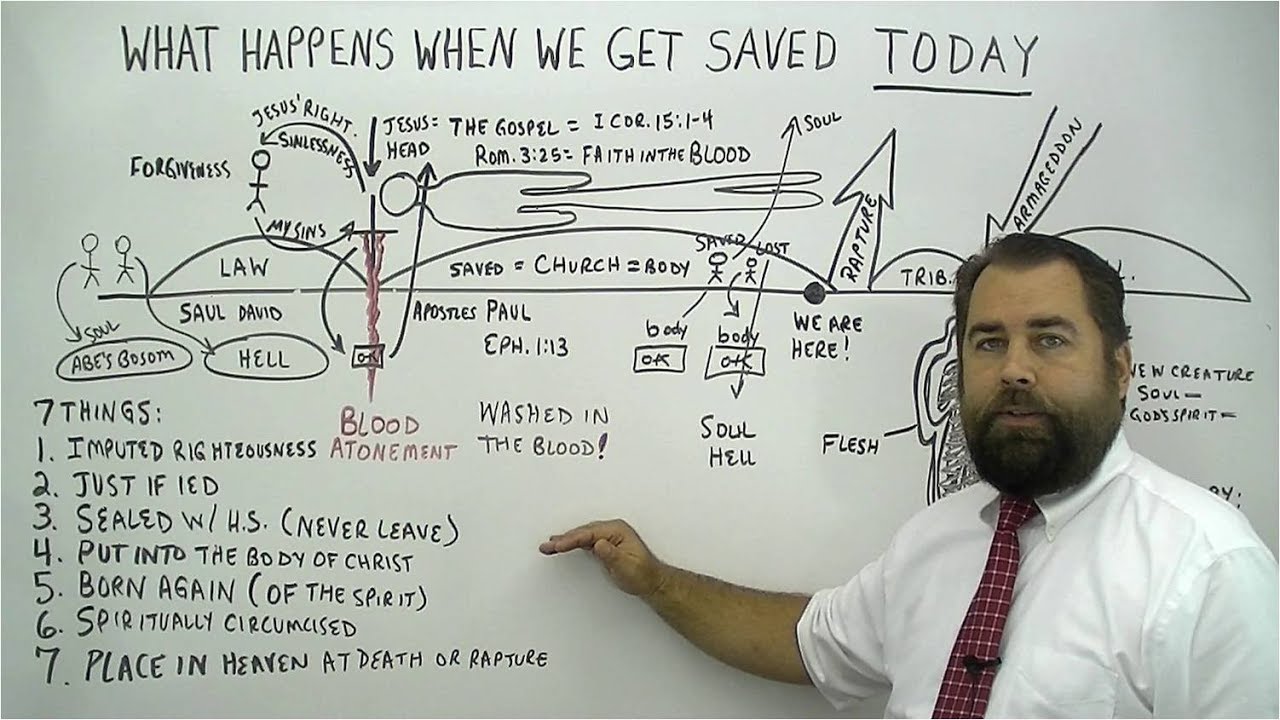 WHAT HAPPENS WHEN WE GET SAVED TODAY
JESUS' RIGHT.
SINLESSNESS
FORGIVENESS
MY SINS
JESUS=
HEAD
THE GOSPEL = I COR. 15:1-4
ROM. 3:25= FAITH IN THE BLOOD
SOUL
RAPTURE
ARMAGEDDON
LAW
SAVED = CHURCH = BODY
SAVED
LOST
TRIB.
L.
SAUL DAVID
SOUL
ABE'S BOSOM
HELL
OK
APOSTLES PAUL
EPH. 1:13
body
OK
body
OK
WE ARE
HERE!
SOUL
HELL
FLESH
NEW CREATURE
SOUL—
GOD'S SPIRIT—
BLOOD
ATONEMENT
WASHED IN
THE BLOOD!
7 THINGS:
1. IMPUTED RIGHTEOUSNESS
2. JUST IF IED
3. SEALED W/ H.S. (NEVER LEAVE)
4. PUT INTO THE BODY OF CHRIST
5. BORN AGAIN (OF THE SPIRIT)
6. SPIRITUALLY CIRCUMCISED
7. PLACE IN HEAVEN AT DEATH OR RAPTURE